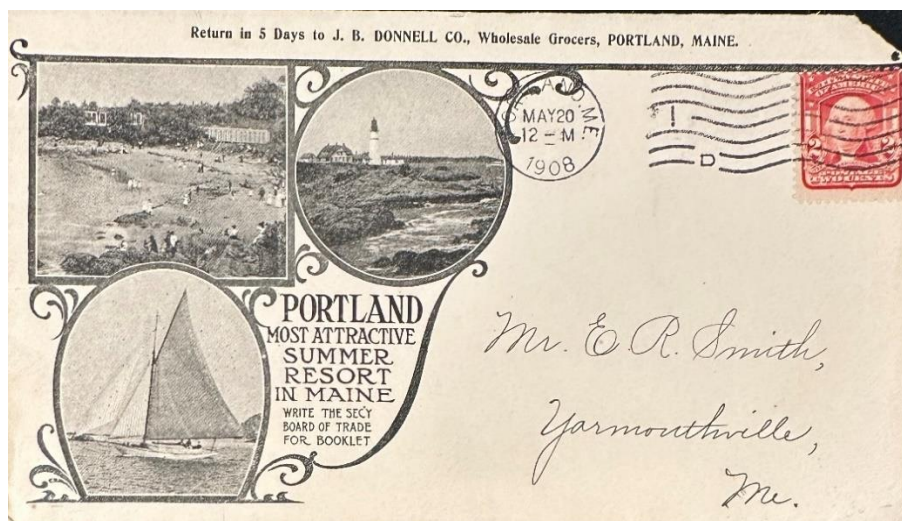 Return in 5 Days to J. B. DONNELL CO., Wholesale Grocers, PORTLAND, MAINE.
PORTLAND, ME.
MAY 20
12 – M
1908
1
D
OF AMERICA
2 2
POSTAGE
TWO CENTS
PORTLAND
MOST ATTRACTIVE
SUMMER
RESORT
IN MAINE
WRITE THE SEC'Y
BOARD OF TRADE
FOR BOOKLET
Mr. E. R. Smith,
Yarmouthville,
Me.